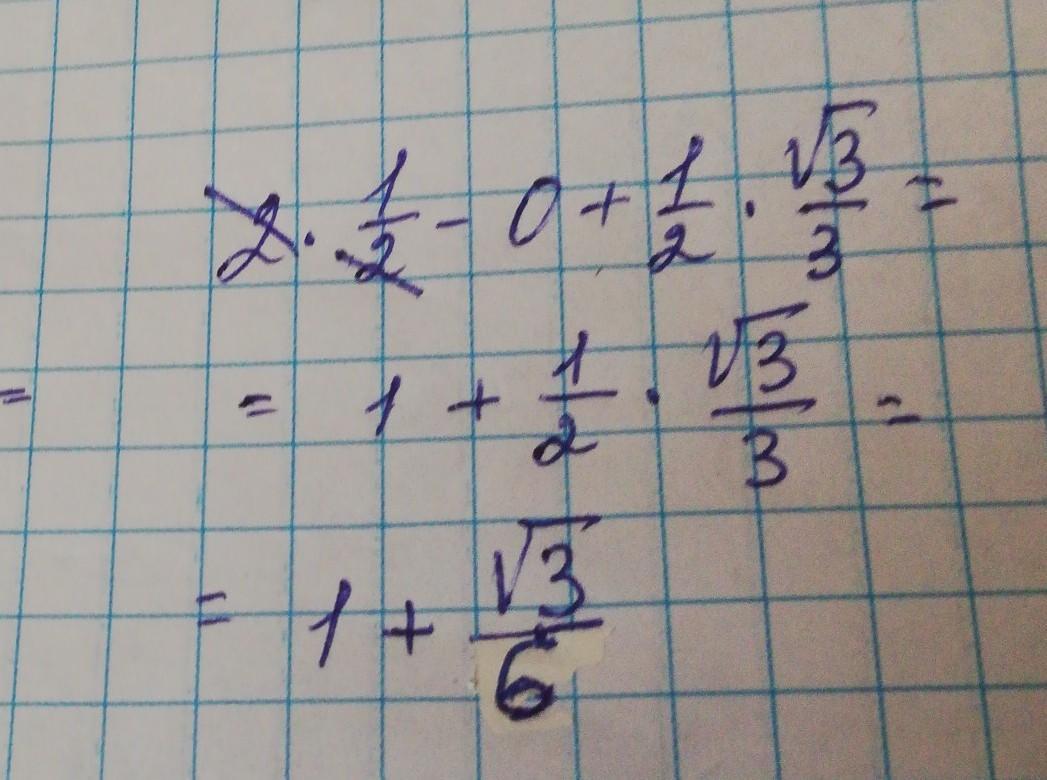 2 · 1/2 - 0 + 1/2 · √3/3 =
= = 1 + 1/2 · √3/3 =
= 1 + √3/6